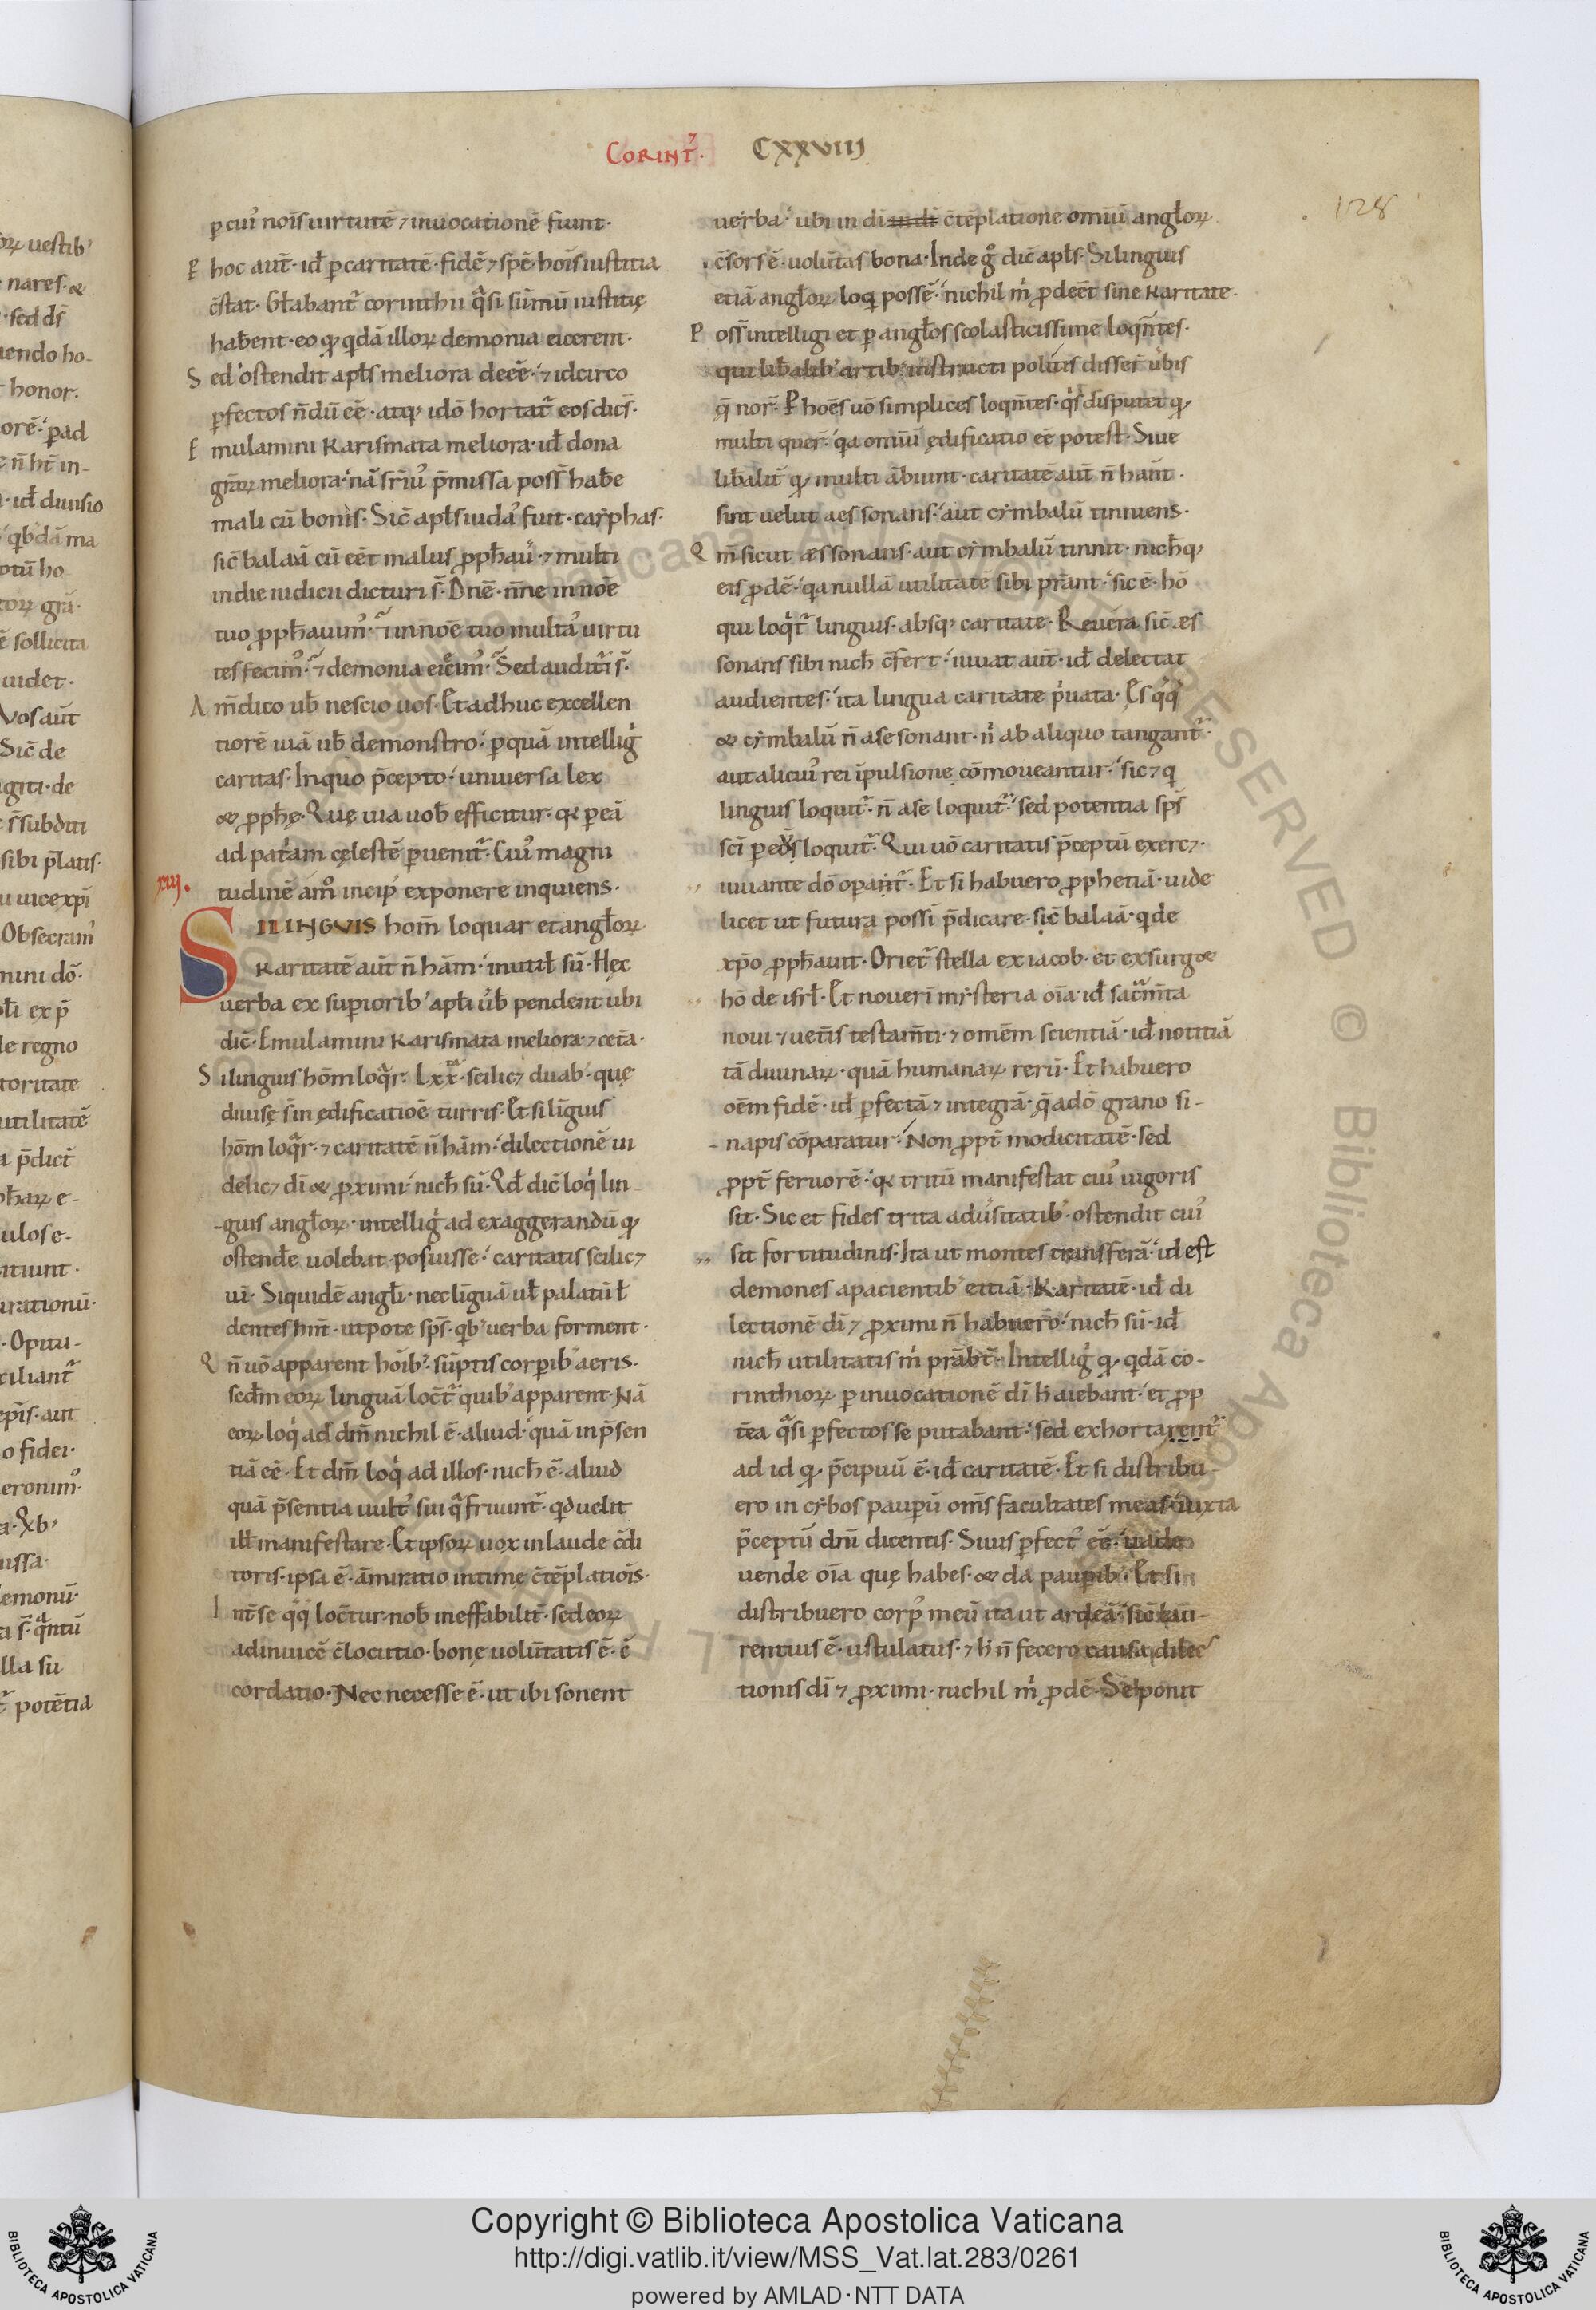 CORINT᷒. CXXVIIJ
128
ꝑ cuiꝰ nōīs uirtutē ⁊ inuocationē fiunt·
P hoc aūt· id ꝑ caritatē· fidē ⁊ spē· hōīs iustitia
c̄stat· Gl̄abant᷒ corinthii q̄si sūmū iustitię
habent· eo qđ qdā illoꝝ demonia eicerent·
S ed ostendit apl̄s meliora deēē· ⁊ idcirco
ꝑfectos n̄dū ēē· atqꝫ idō hortat᷒ eos dicēs·
E mulamini karismata meliora· id dona
gr̄aꝝ meliora· nā sr̄iꝰ p̄missa poss̄ habe
mali cū bonis· Sic̄ apl̄s iudaꝰ fuit· cayphas·
sic̄ balaā cū eēt malus ꝓph̄auit· ⁊ multi
in die iudicii dicturi s̄· Dn̄e· n̄ne in nōē
tuo ꝓph̄auimꝰ· ⁊ in nōē tuo multaꝰ uirtu
tes fecimꝰ· ⁊ demonia eiecimꝰ· Sed audituri s̄·
A m̄ dico uob̄ nescio uos· Et adhuc excellen
tiorē uiā uob̄ demonstro· ꝑ quā intelligit᷒
caritas· In quo p̄cepto· uniuersa lex
& ꝓph̄ę· Quę uia uob̄ efficitur· qa ꝑ eā
ad patriam cęlestē ꝑuenit᷒· Cuiꝰ magni
xiij.
tudinē am̄o incip̄ exponere inquiens·
SI LINGVIS hom̄ loquar et angl̄oꝝ·
karitatē aūt n̄ hām· inutil̄ sū· Hęc
uerba ex superioribꝰ apl̄i uerb̄ pendent ubi
dic̄· Emulamini karismata meliora· ⁊ cet̄a·
S i linguis hōm loq̄r· Lxx̄· scilicꝫ duabꝰ· quę
diuisę s̄ in ędificatiōē turris· Et si linguis
hōm loq̄r· ⁊ caritatē n̄ hām· dilectionē ui
delicꝫ dī & ꝓximi· nich̄ sū· Qđ dic̄ loqi lin
guis angl̄oꝝ· intelligit᷒ ad exaggerandū qđ
ostende uolebat posuisse· caritatis scilicꝫ
ui· Siquidē angl̄i· nec līguā ul̄ palatū ł
dentes hn̄t· utpote sp̄s· qbꝰ uerba forment·
Q n̄ uō apparent hōībꝰ· sūptis corꝑibꝰ aeris·
secd̄m eoꝝ linguā locunt᷒ quibꝰ apparent· Nā
eoꝝ loqi ad dm̄ nichil ē· aliud· quā in p̄sen
tiā ēē· Et dm̄ loqi ad illos· nich̄ ē· aliud
quā p̄sentia uultꝰ sui q̄ fruunt᷒· qđ uelit
ill̄ manifestare· Et ipsoꝝ uox in laude c̄di
toris· ipsa ē· āmiratio intimę c̄tēplatiōis·
I nt̄ se q̄q̄ loc̄tur· nob̄ ineffabilit̄· sed eoꝝ
adinuicē c̄locutio· bonę uolūtatis ē· c̄
cordatio· Nec necesse ē· ut ibi sonent
uerba· ubi in dī c̄tēplatione omīū angl̄oꝝ
c̄sors ē· uolūtas bona· Inde g° dic̄ apl̄s· Si linguis
etiā angl̄oꝝ loqi possē· nichil m̄ ꝓdeēt sine karitate·
P oss̄ intelligi et ꝑ angl̄os scolasticissime loqn̄tes·
qui lib̄alibꝰ artibꝰ instructi politis disser̄ uerbis
q̄ nor̄· P hōēs uō simplices loqn̄tes· qs disputet qđ
multi quer̄· qa omīū ędificatio ēē potest· Siue
lib̄alit̄ qđ multi ābiunt· caritatē aūt n̄ hānt·
sint uelut aes sonans· aut cymbalū tinniens·
Q m̄ sicut æs sonans· aut cymbalū tinnit· nich̄qꝫ
eis ꝓdē· qa nullā utilitatē sibi p̄rant· sic ē· hō
qui loqt᷒ linguis· absqꝫ caritate· Reuera sic̄ æs
sonans sibi nich̄ c̄fert· iuuat aūt· id delectat
audientes· ita lingua caritate p̄uata· Es q̄q̄
& cymbalū n̄ a se sonant· nisi ab aliquo tangant᷒·
aut alicuiꝰ rei īpulsione cōmoueantur· sic ⁊ q
linguis loquit᷒· n̄ a se loquit᷒· sed potentia sp̄s
scī ꝑ eos loquit᷒· Qui uō caritatis p̄ceptū exercꝫ·
iuuante dō oꝑat᷒· Et si habuero ꝓphetiā· uide
licet ut futura possī p̄dicare· sic̄ balaā· q de
xp̄o ꝓph̄auit· Oriet᷒ stella ex iacob· et exsurg&
hō de isrl̄· Et nouerī mysteria oīa· id sac̄mta
noui ⁊ uetis testam̄ti· ⁊ omēm scientiā· id notitiā
tā diuinaꝝ· quā humanaꝝ rerū· Et habuero
oēm fidē· id ꝑfectā ⁊ integrā· q̄ a dō grano si-
napis cōparatur· Non ꝓpt̄ modicitatē· sed
ꝓpt̄ feruorē· qa tritū manifestat cuiꝰ uigoris
sit· Sic et fides trita aduersitatibꝰ· ostendit cuiꝰ
sit fortitudinis· Ita ut montes transferā· id est
demones a pacientibꝰ eiciā· Karitatē· id di
lectionē dī ⁊ ꝓximi n̄ habuero· nich̄ sū· id
nich̄ utilitatis m̄ p̄rābit᷒· Intelligit᷒ qđ qdā co-
rinthioꝝ ꝑ inuocationē dī h̄ aiebant· et ꝓp
tēa q̄si ꝑfectos se putabant· sed exhortarent᷒
ad id qđ p̄cipuū ē· id caritatē· Et si distribu
ero in cybos pauꝑū om̄s facultates meas· iuxta
p̄ceptū dnī dicentis· Si uis ꝑfectꝰ ēē· uade
uende oīa quę habes· & da pauꝑibꝰ· Et si
distribuero corpꝰ meū ita ut ardeā· sic̄ lau-
rentius ē· ustulatus· ⁊ h̄ n̄ fecero causa dilec
tionis dī ⁊ ꝓximi· nichil m̄ ꝓdē· Se ponit
Copyright © Biblioteca Apostolica Vaticana
http://digi.vatlib.it/view/MSS_Vat.lat.283/0261
powered by AMLAD·NTT DATA
BIBLIOTECA APOSTOLICA VATICANA
BIBLIOTECA APOSTOLICA VATICANA